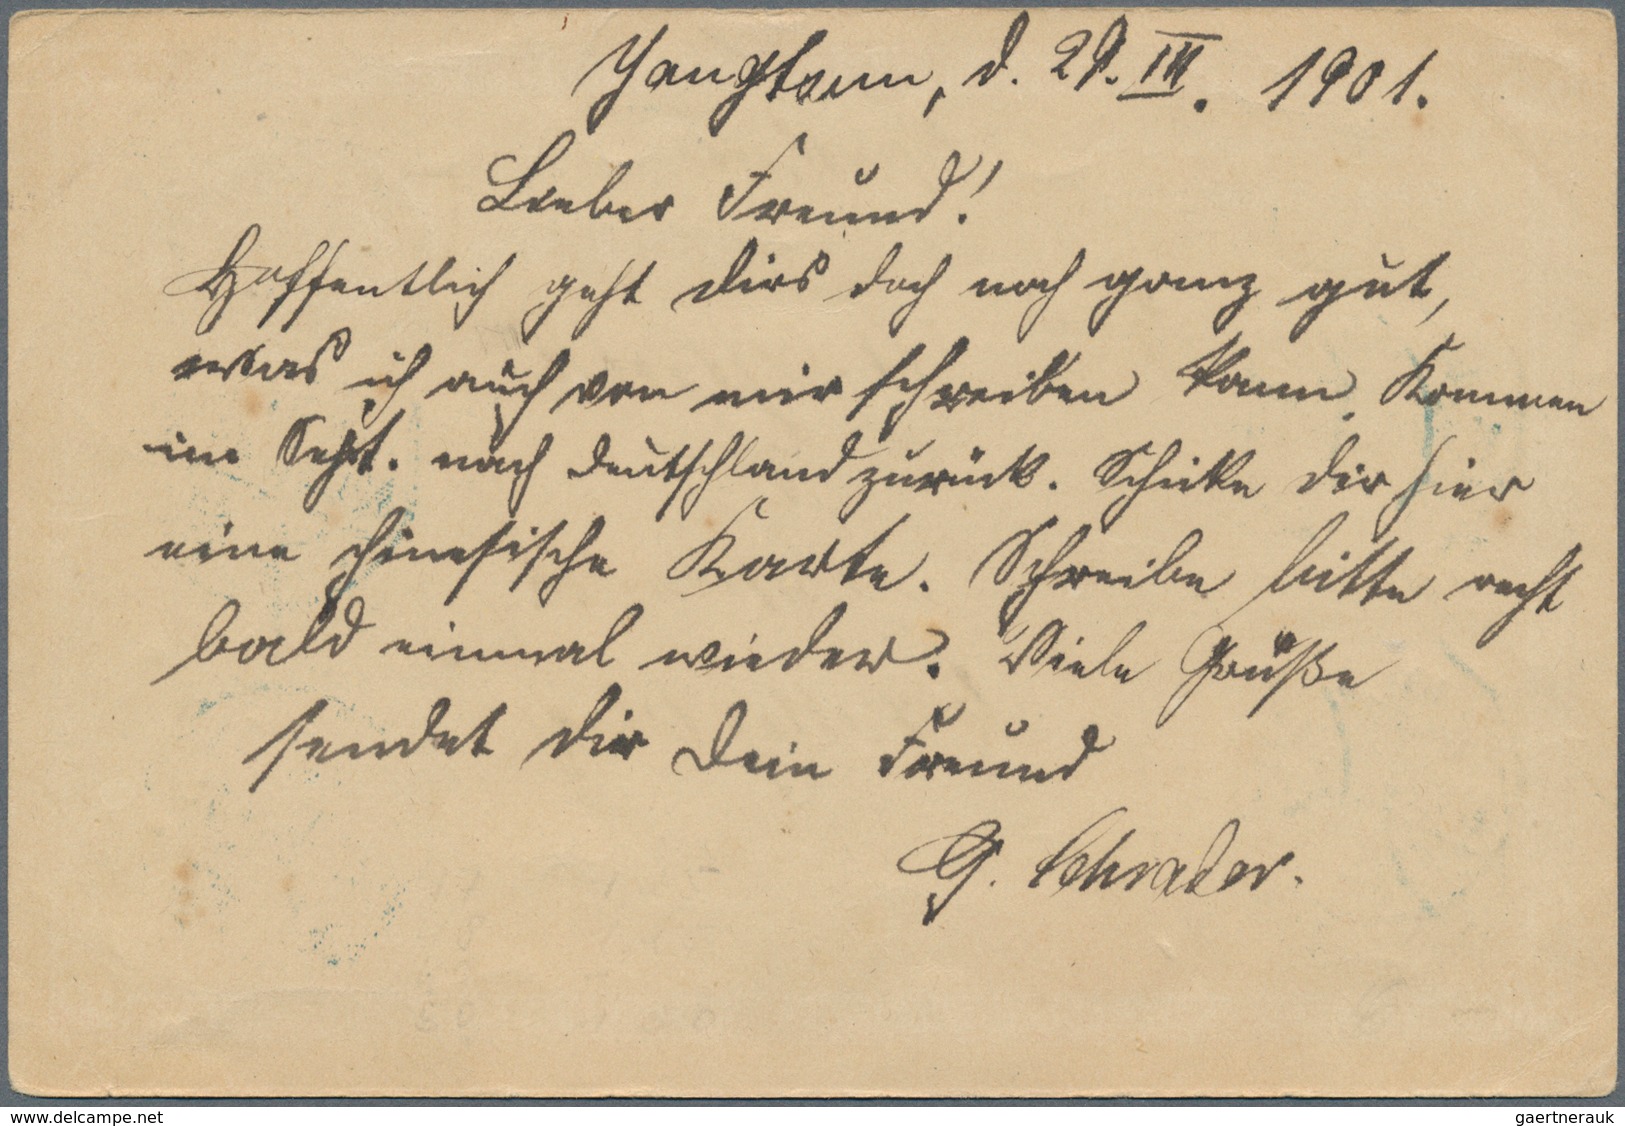 Yangtsun, d. 29. III. 1901.
Lieber Freund!
Hoffentlich geht Dirs doch noch ganz gut,
was ich auch von mir schreiben kann. Kommen
im Sept. nach Deutschland zurück. Schicke Dir hier
eine chinesische Karte. Schreibe bitte recht
bald einmal wieder. Viele Grüße
sendet Dir Dein Freund
G. Schrader.
www.delcampe.net
gaertnerauk